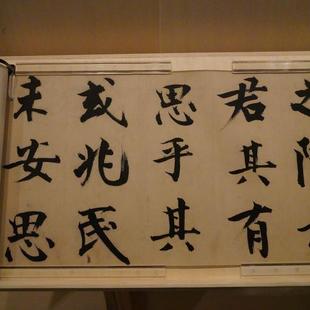 君其有
思乎其
或兆民
未安思